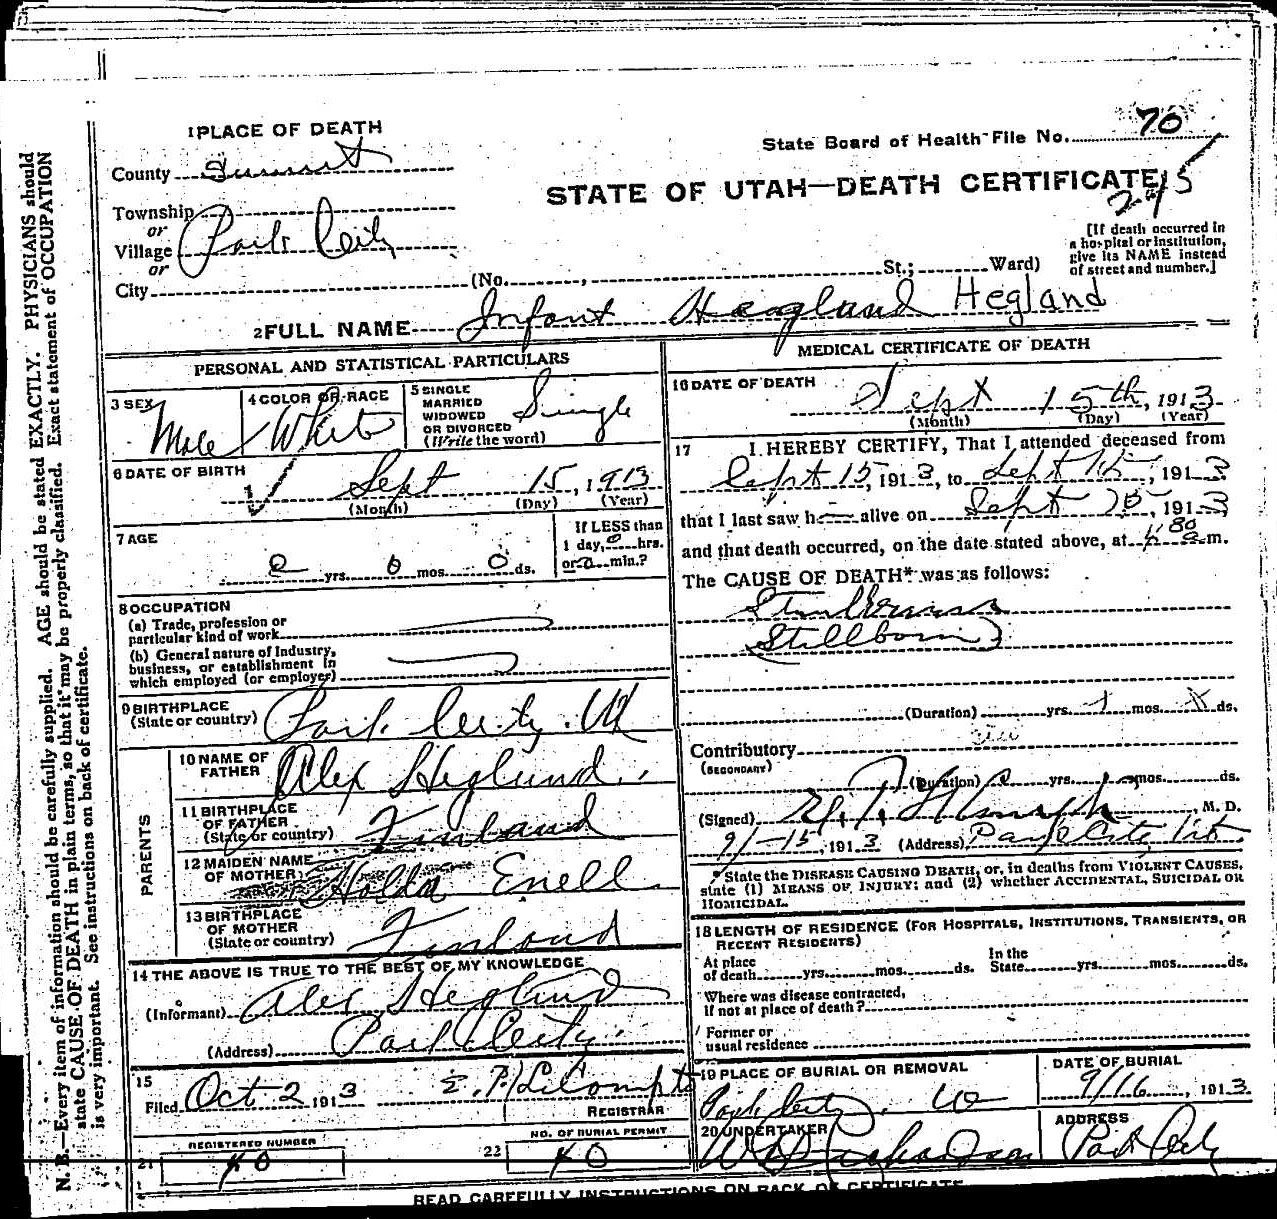 1 PLACE OF DEATH
State Board of Health File No. 70
County Summit
STATE OF UTAH—DEATH CERTIFICATE
245
Township
or
Village Park City
or
City
[If death occurred in
a hospital or institution,
give its NAME instead
of street and number.]
(No. , St.; Ward)
2 FULL NAME Infant Hegland Hegland
PERSONAL AND STATISTICAL PARTICULARS
3 SEX Male
4 COLOR OR RACE White
5 SINGLE
MARRIED
WIDOWED
OR DIVORCED
(Write the word)
Single
6 DATE OF BIRTH
Sept 15, 1913
(Month) (Day) (Year)
7 AGE
0 yrs. 0 mos. 0 ds.
If LESS than
1 day, 0 hrs.
or 0 min.?
8 OCCUPATION
(a) Trade, profession or
particular kind of work
(b) General nature of Industry,
business, or establishment in
which employed (or employer)
9 BIRTHPLACE
(State or country) Park City. Ut
PARENTS
10 NAME OF
FATHER Alex Heglund
11 BIRTHPLACE
OF FATHER
(State or country) Finland
12 MAIDEN NAME
OF MOTHER Holda Enell
13 BIRTHPLACE
OF MOTHER
(State or country) Finland
14 THE ABOVE IS TRUE TO THE BEST OF MY KNOWLEDGE
(Informant) Alex Heglund
(Address) Park City
15
Filed Oct 2 1913
REGISTRAR
REGISTERED NUMBER
21 40
NO. OF BURIAL PERMIT
22 40
MEDICAL CERTIFICATE OF DEATH
16 DATE OF DEATH
Sept 15th, 1913
(Month) (Day) (Year)
17 I HEREBY CERTIFY, That I attended deceased from
Sept 15, 1913, to Sept 15, 1913
that I last saw h alive on Sept 15, 1913
and that death occurred, on the date stated above, at m.
The CAUSE OF DEATH* was as follows:
Stillborn
(Duration) yrs. mos. ds.
Contributory
(SECONDARY)
(Duration) yrs. mos. ds.
(Signed) , M. D.
9/-15, 1913 (Address) Park City, Ut
*State the DISEASE CAUSING DEATH, or, in deaths from VIOLENT CAUSES,
state (1) MEANS OF INJURY; and (2) whether ACCIDENTAL, SUICIDAL OR
HOMICIDAL.
18 LENGTH OF RESIDENCE (FOR HOSPITALS, INSTITUTIONS, TRANSIENTS, OR
RECENT RESIDENTS)
At place
of death yrs. mos. ds.
In the
State yrs. mos. ds.
Where was disease contracted,
if not at place of death?
Former or
usual residence
19 PLACE OF BURIAL OR REMOVAL
Park City.
DATE OF BURIAL
9/16, 1913
20 UNDERTAKER
ADDRESS
Park City
READ CAREFULLY INSTRUCTIONS ON BACK OF CERTIFICATE
N. B.—Every item of information should be carefully supplied. AGE should be stated EXACTLY. PHYSICIANS should
state CAUSE OF DEATH in plain terms, so that it may be properly classified. Exact statement of OCCUPATION
is very important. See instructions on back of certificate.